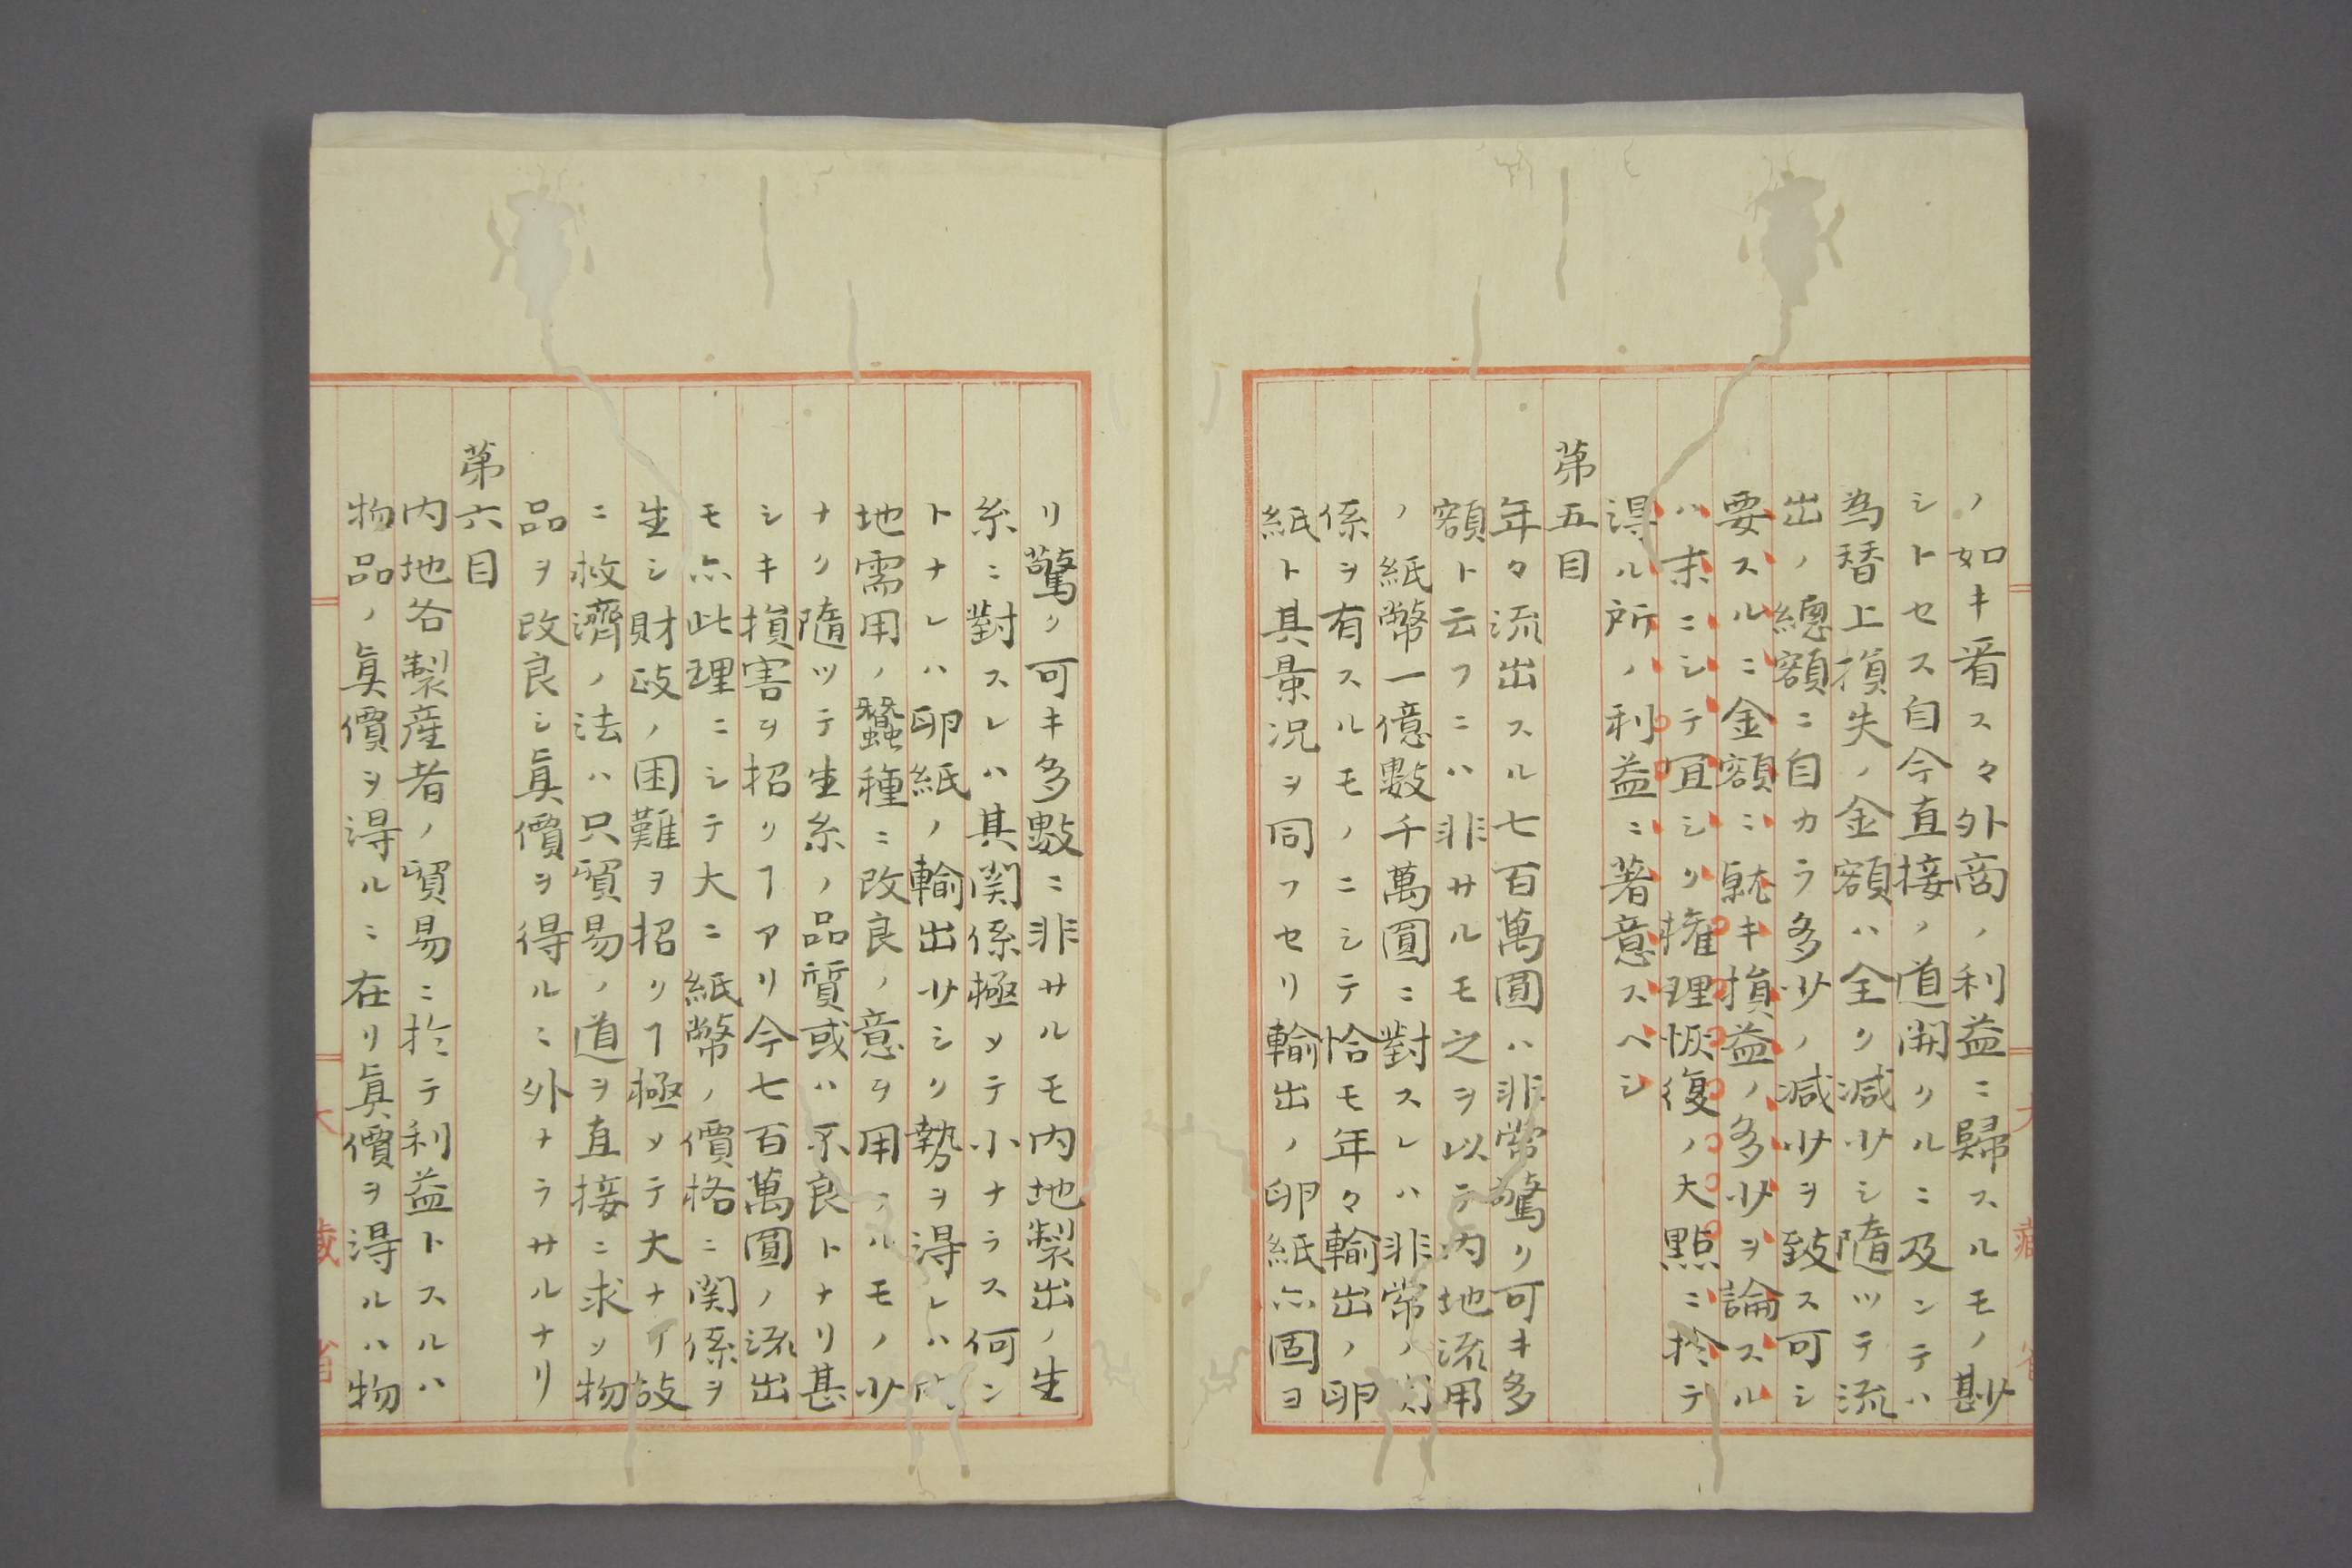 ノ如キ看ス々外商ノ利益ニ歸スルモノ尠
シトセス自今直接ノ道開クルニ及ンテハ
為替上損失ノ金額ハ全ク減少シ隨ツテ流
出ノ總額ニ自カラ多少ノ減少ヲ致ス可シ
要スルニ金額ニ就キ損益ノ多少ヲ論スル
ハ末ニシテ宜シク權理恢復ノ大點ニ於テ
得ル所ノ利益ニ著意スベシ
第五目
年々流出スル七百萬圓ハ非常驚ク可キ多
額ト云フニハ非サルモ之ヲ以テ内地流用
ノ紙幣一億數千萬圓ニ對スレハ非常ノ関
係ヲ有スルモノニシテ恰モ年々輸出ノ卵
紙ト其景況ヲ同フセリ輸出ノ卵紙亦固ヨ
リ驚ク可キ多數ニ非サルモ内地製出ノ生
糸ニ對スレハ其関係極メテ小ナラス何ン
トナレハ卵紙ノ輸出少シク勢ヲ得レハ内
地需用ノ蠶種ニ改良ノ意ヲ用フルモノ少
ナク隨ツテ生糸ノ品質或ハ不良トナリ甚
シキ損害ヲ招クヿアリ今七百萬圓ノ流出
モ亦此理ニシテ大ニ紙幣ノ價格ニ関係ヲ
生シ財政ノ困難ヲ招クヿ極メテ大ナリ故
ニ救濟ノ法ハ只貿易ノ道ヲ直接ニ求メ物
品ヲ改良シ眞價ヲ得ルニ外ナラサルナリ
第六目
内地各製産者ノ貿易ニ於テ利益トスルハ
物品ノ眞價ヲ得ルニ在リ眞價ヲ得ルハ物
大藏省